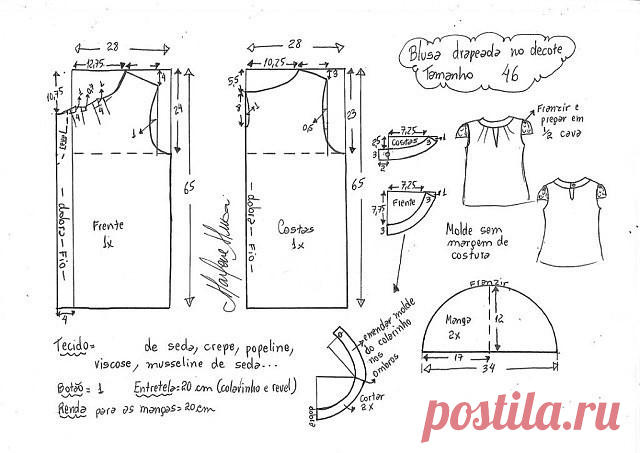 Blusa drapeada no decote
Tamanho 46
28
12,75
4
10,75
1
0,7
1
4
4
1
7 mm
24
65
dobra - Fio
Frente
1x
4
28
10,25
3
5,5
8
1
0,5
23
65
dobra - Fio
Costas
1x
Marlene Mukai
7,25
Costas
2,5
3
3
2
7,25
Frente
3
7,75
3
Franzir e
prepar em
1/2 cava
Molde sem
margem de
costura
Franzir
Manga
2x
12
17
34
emendar molde
do colarinho
nos
ombros
Cortar
2x
dobra
Tecido= de seda, crepe, popeline,
viscose, musseline de seda...
Botão = 1 Entretela=20cm (colarinho e revel)
Renda para as mangas=20cm
postila.ru